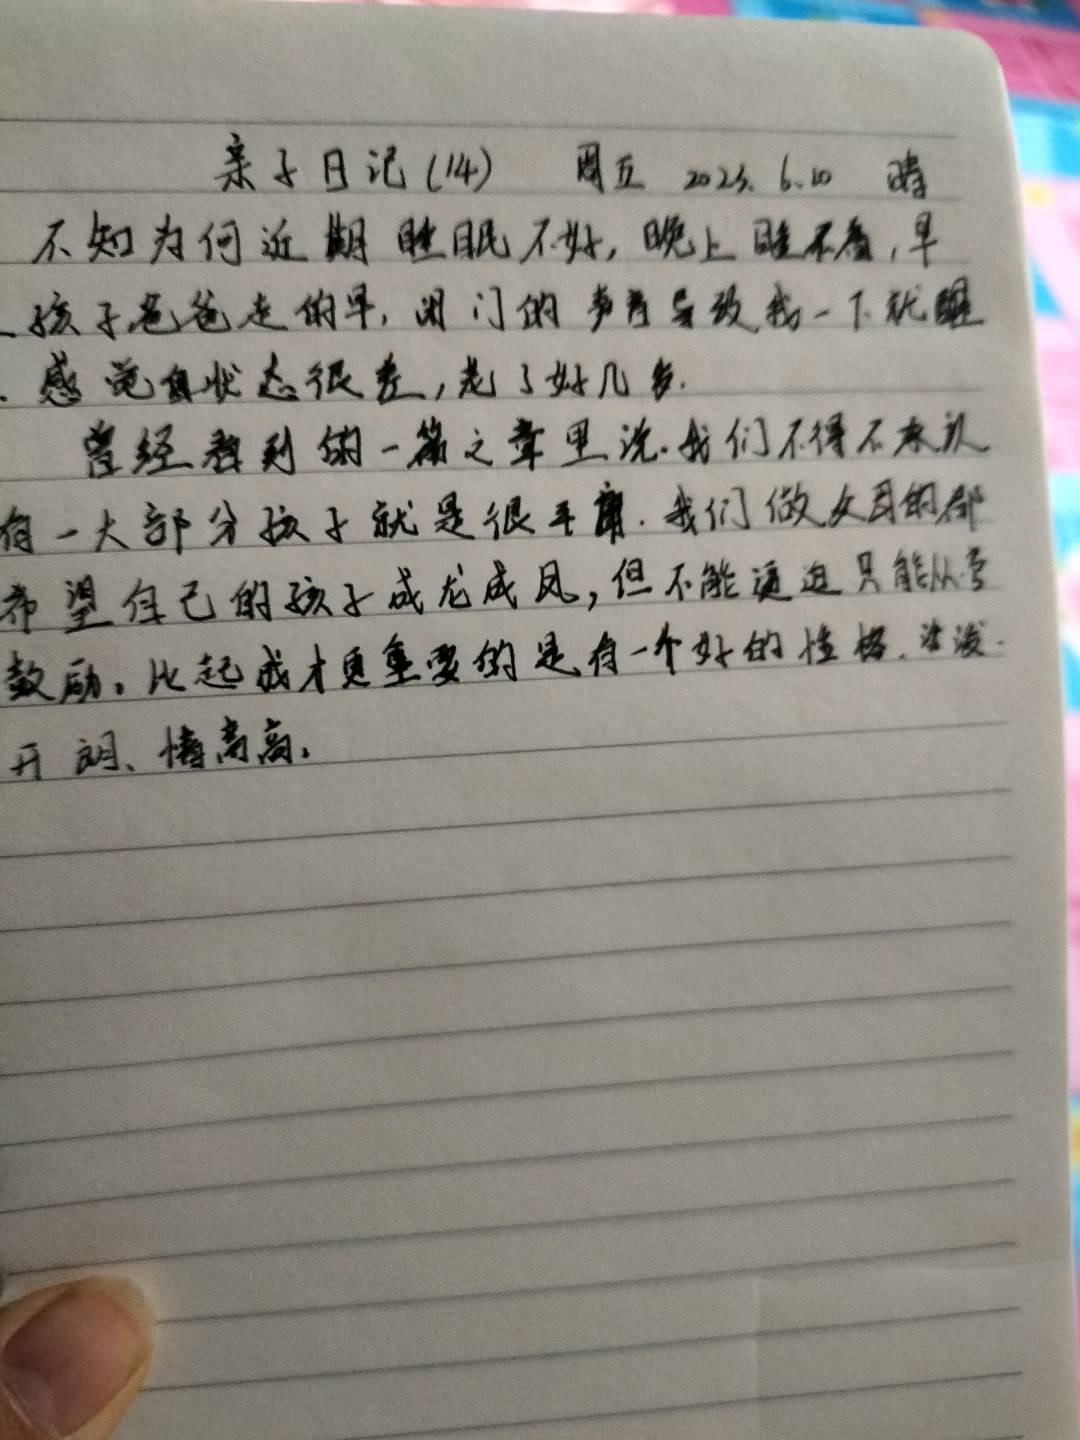 亲子日记(14) 周五 2023.6.10 晴
不知为何近期睡眠不好,晚上睡不着,早
上孩子爸爸走的早,闭门的声音导致我一下就醒
感觉自状态很差,老了好几岁.
曾经看到的一篇文章里说.我们不得不承认
有一大部分孩子就是很平庸.我们做父母的都
希望自己的孩子成龙成凤,但不能逼迫只能从旁
鼓励。比起成才更重要的是有一个好的性格.活泼.
开朗、情商高.